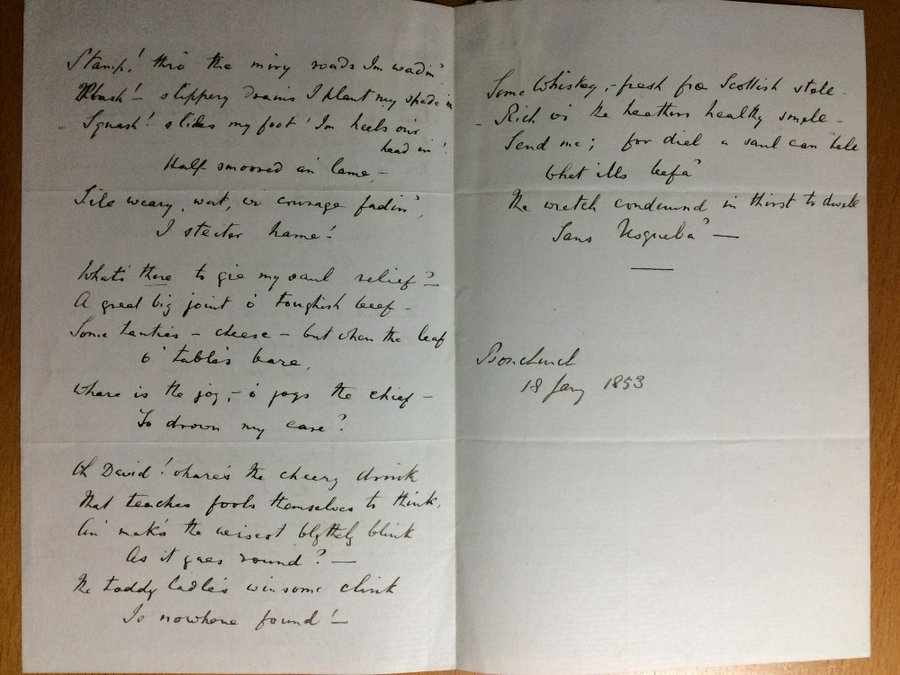 Stamp! thro' the miry roads I'm wadin'
Plash! – slippery drains I plant my spade in
– Squash! slides my foot! I'm heels o'er
head in!
Half smoored an' lame, –
Sile weary, wat, wi' courage fadin',
I stecter hame!
What's there to gie my saul relief? –
A great big joint o' toughish beef –
Some tauties – cheese – but when the leaf
O' table's bare,
Whare is the joy, – o' joys the chief –
To drown my care?
Oh David! whare's the cheery drink
That teaches fools themselves to think,
An' mak's the weisest blythely blink
As it gaes round? –
The toddy ladle's winsome clink
Is nowhere found! –
Some Whiskey, – fresh frae Scottish stele –
– Rich wi' the heathers healthy smele –
Send me; for diel a saul can tele
What ills befa'
The wretch condemned in thirst to dwele
Sans Usqueba' –
Bonchurch
18 Jany 1853